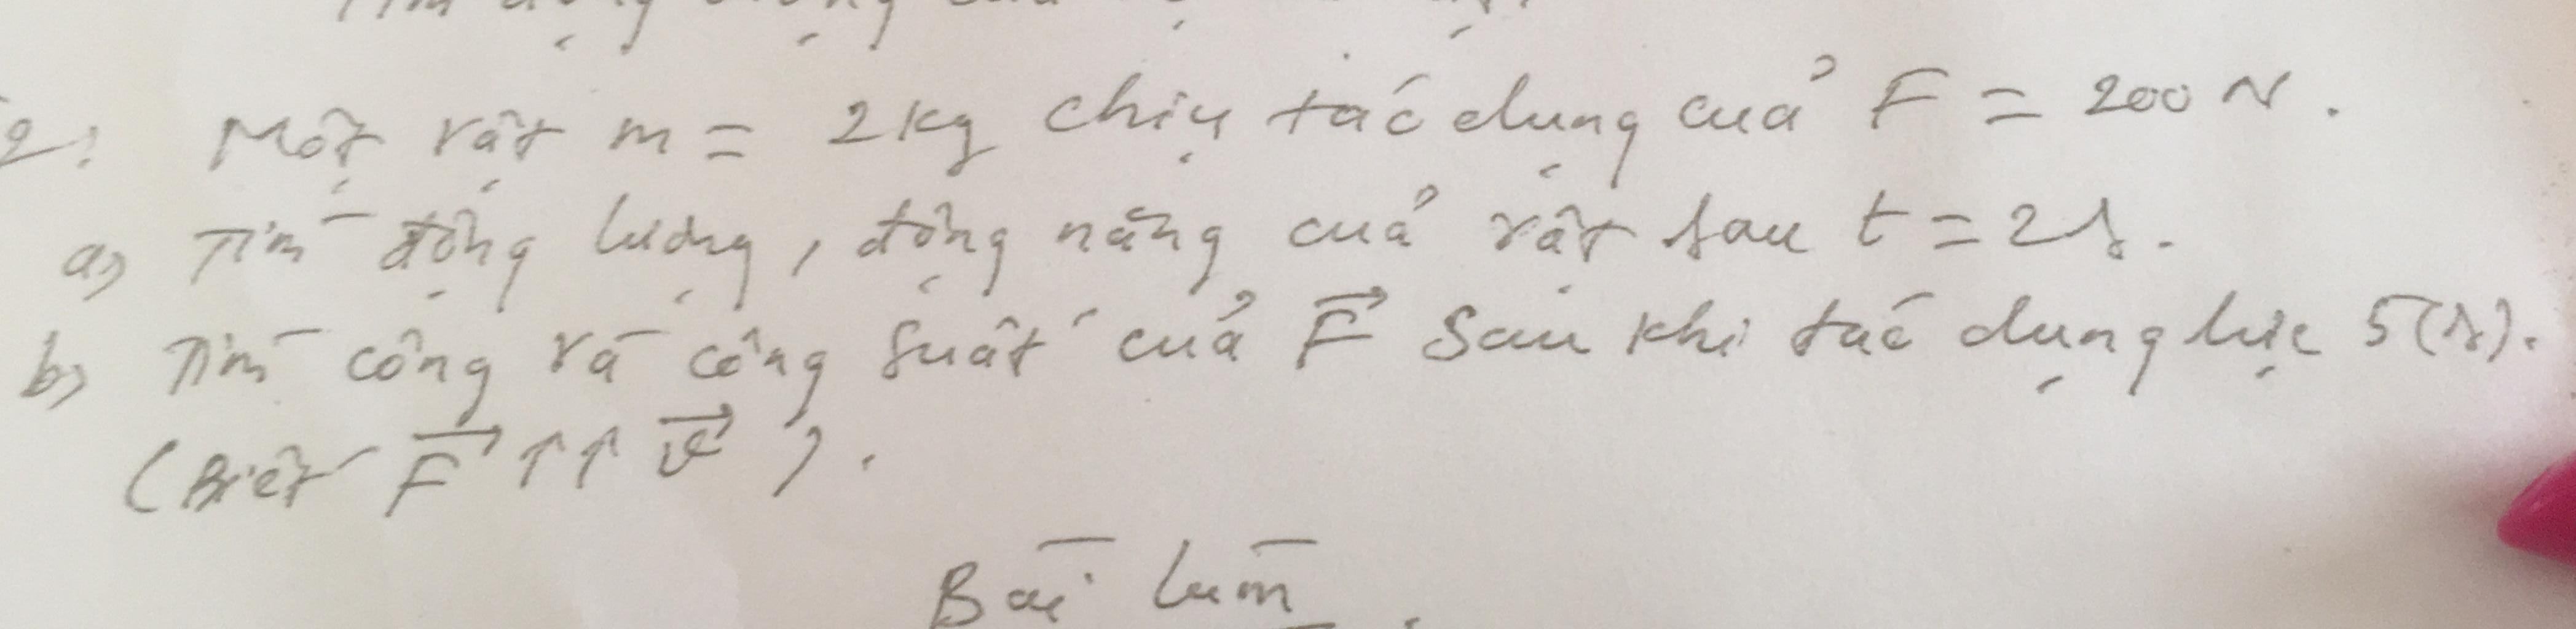 2: Một vật m = 2kg chịu tác dụng của F = 200 N.
a) Tìm động lượng, động năng của vật sau t = 2s.
b) Tìm công và công suất của F⃗ sau khi tác dụng lực 5(s).
(Biết F⃗ ↑↑ v⃗).
Bài làm